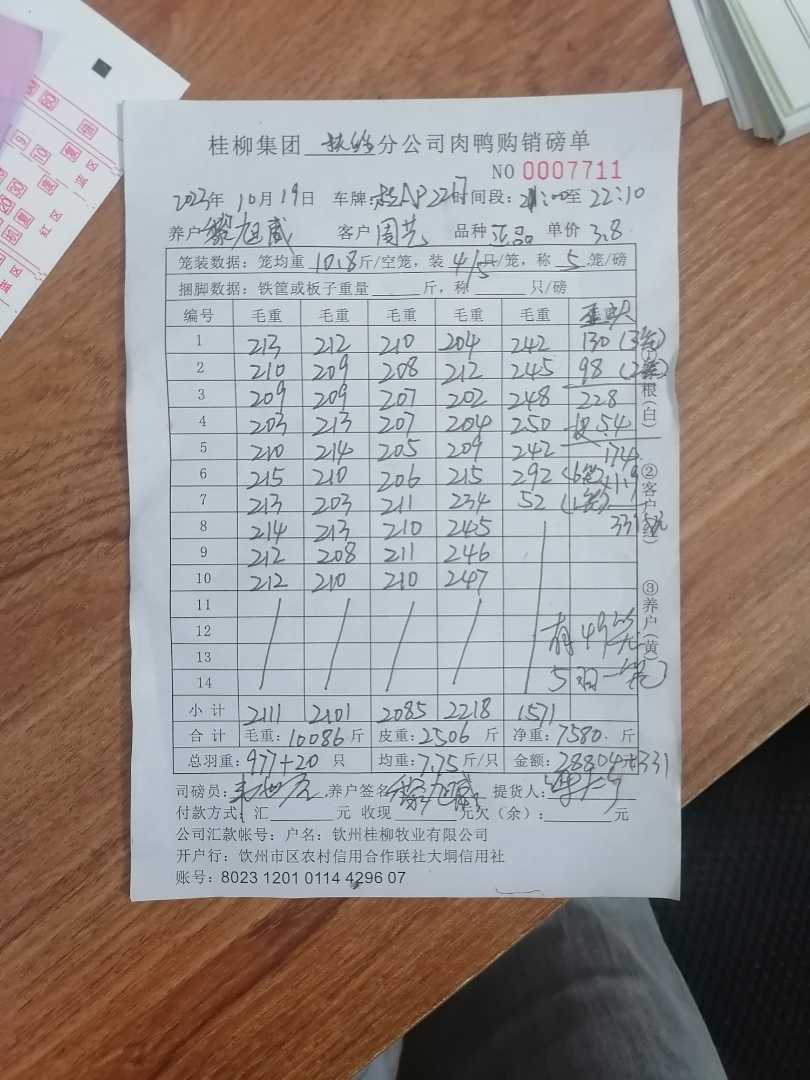 桂柳集团 分公司肉鸭购销磅单
NO 0007711
2022年 10月19日 车牌: 时间段: 21:00至22:10
养户 旭威 客户 周 品种 正品 单价 3.8
笼装数据: 笼均重 10.8 斤/空笼, 装 4/5 只/笼, 称 5 笼/磅
捆脚数据: 铁筐或板子重量 斤, 称 只/磅
编号 毛重 毛重 毛重 毛重 毛重
1 213 212 210 204 242 130 (3笼)
2 210 209 208 212 245 98 (2笼)
3 209 209 207 202 248 228
4 203 213 207 204 250 54
5 210 214 205 209 242 174
6 215 210 206 215 292 (6笼) 1.9
7 213 203 211 234 52 (1笼)
8 214 213 210 245 331元
9 212 208 211 246
10 212 210 210 247
11
12 有49笼
13
14 5羽一笼
小计 2111 2101 2085 2218 1571
合计 毛重: 10086 斤 皮重: 2506 斤 净重: 7580 斤
总羽重: 977+20 只 均重: 7.75 斤/只 金额: 28804+331
司磅员: 养户签名 提货人:
付款方式: 汇 元 收现 元欠(余): 元
公司汇款帐号: 户名: 钦州桂柳牧业有限公司
开户行: 钦州市区农村信用合作联社大垌信用社
账号: 8023 1201 0114 4296 07
根(白)
②客户(红)
③养户(黄)